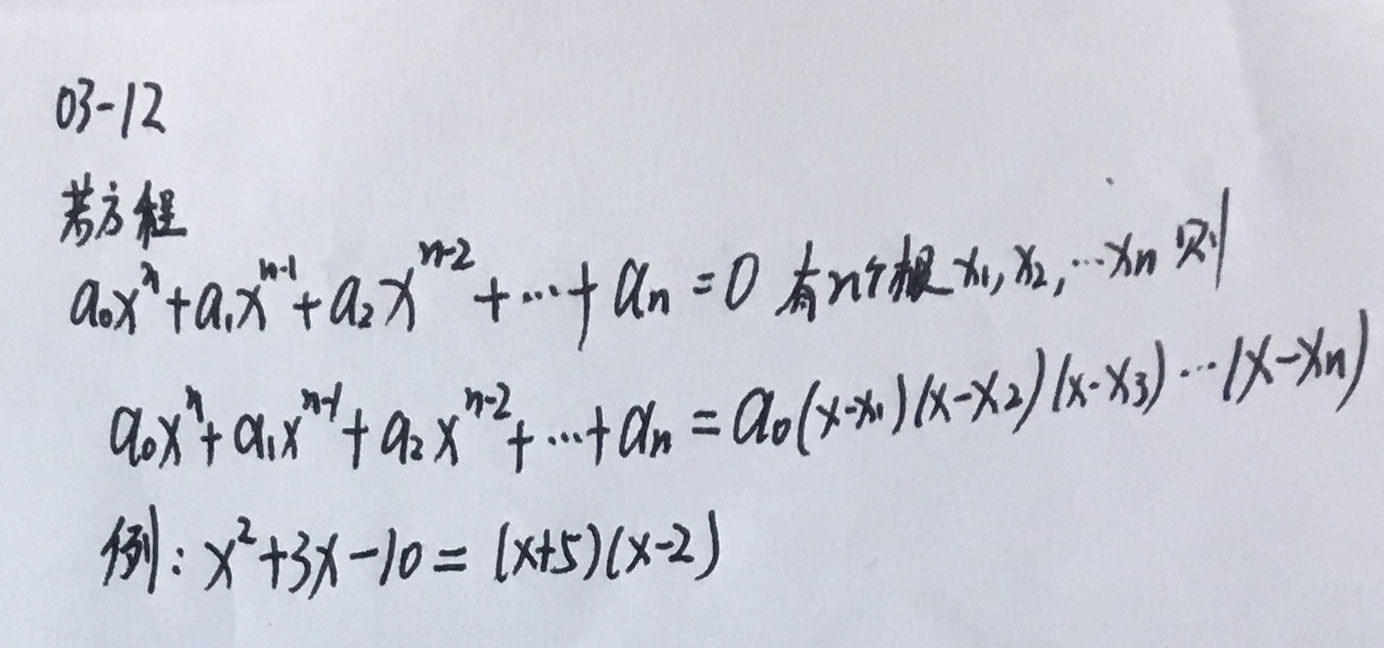 03-12
若方程
a₀xⁿ+a₁xⁿ⁻¹+a₂xⁿ⁻²+…+aₙ=0 有n个根 x₁,x₂,…xₙ 则
a₀xⁿ+a₁xⁿ⁻¹+a₂xⁿ⁻²+…+aₙ=a₀(x-x₁)(x-x₂)(x-x₃)…(x-xₙ)
例:x²+3x-10=(x+5)(x-2)